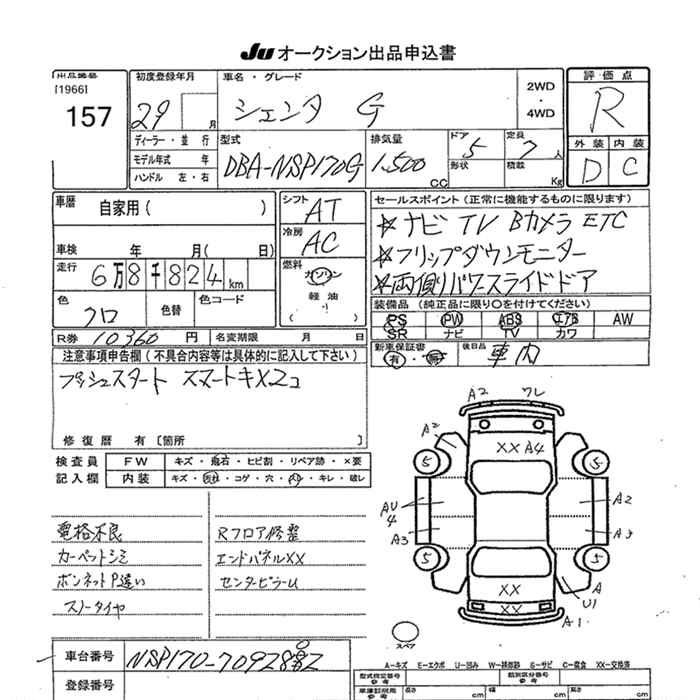 Ju オークション出品申込書
出品番号
[1966]
157
初度登録年月
29 月
ディーラー・並行
モデル年式 年
ハンドル 左・右
車名・グレード
シエンタ G
2WD
・
4WD
評価点
R
外装 内装
D C
型式
DBA-NSP170G
排気量
1,500 CC
ドア 5
形状
定員 7 人
積載 Kg
車歴
自家用( )
車検 年 月( 日)
走行 6万8千824km
色 クロ
色替
色コード
R券 10360 円
名変期限 月 日
シフト AT
冷房 AC
燃料
ガソリン
軽油
( )
セールスポイント(正常に機能するものに限ります)
☆ナビ TV Bカメラ ETC
☆フリップダウンモニター
☆両側パワースライドドア
装備品(純正品に限り○を付けてください)
PS PW ABS エアB AW
SR ナビ TV カワ
新車保証書 有・無
後日品 車内
注意事項申告欄(不具合内容等は具体的に記入して下さい)
プッシュスタート スマートキX2コ
修復歴 有〔箇所 〕
検査員 FW キズ・飛石・ヒビ割・リペア跡・×要
記入欄 内装 キズ・コゲ・穴・キレ・破レ
電格不良
カーペットシミ
ボンネットP違い
スノータイヤ
Rフロア修整
エンドパネルXX
センターピラーU
A2 ワレ
A2
XX A4
5 5
AU
4
A2
A3 A3
5 5
XX
XX
A
U1
A1
スペア
A-キズ E-エクボ U-凹み W-補修跡 S-サビ C-腐食 XX-交換済
車台番号
登録番号
型式指定番号
参考
類別区分番号
参考
車庫証明用
参考
長さ cm 幅 cm 高さ cm